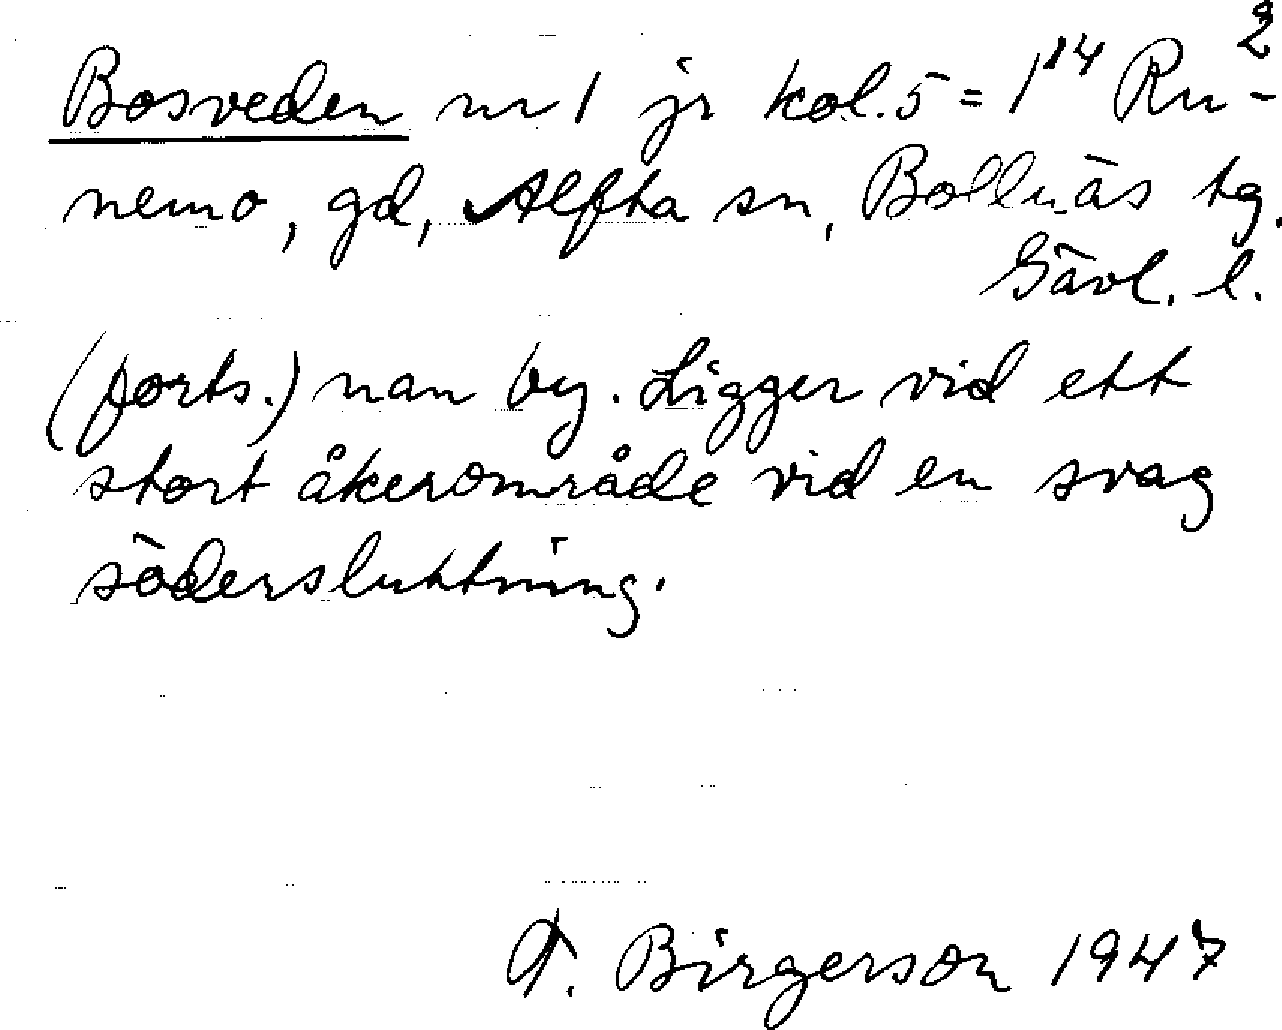 2
Bosveden nr 1 jr kol. 5 = 1¹⁴ Ru-
nemo, gd, Alfta sn, Bollnäs tg.
Gävl. l.
(forts.) nan by. Ligger vid ett
stort åkerområde vid en svag
södersluttning.
T. Birgerson 1947